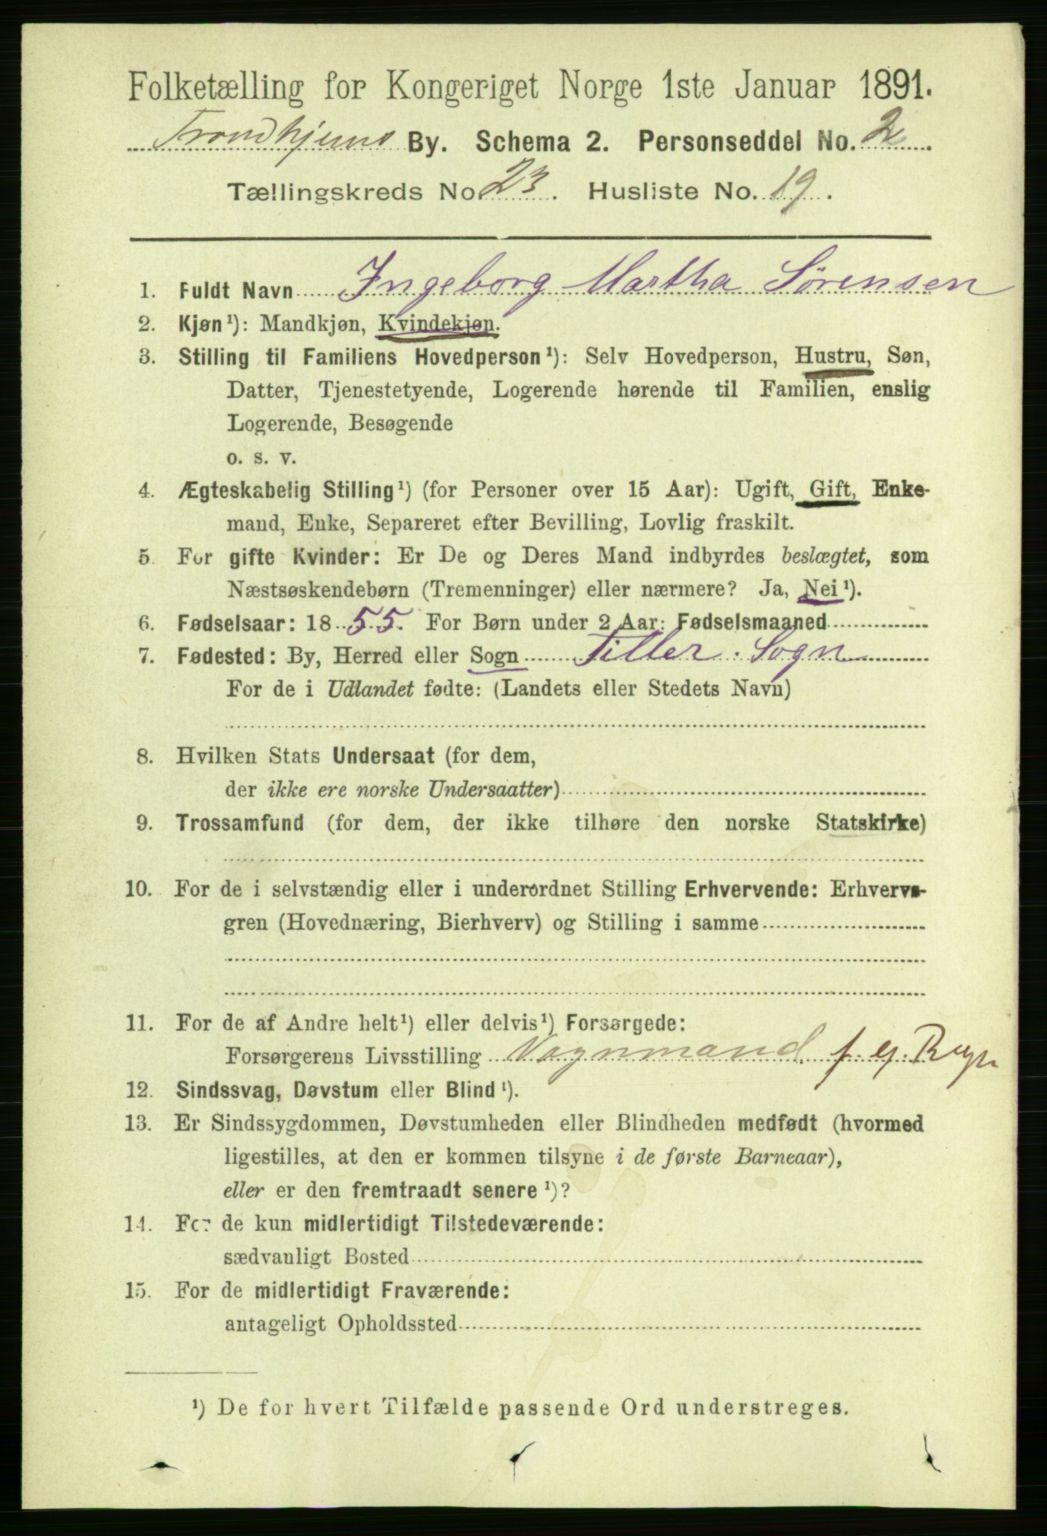 Folketælling for Kongeriget Norge 1ste Januar 1891.
Trondhjems By. Schema 2. Personseddel No. 2
Tællingskreds No. 23. Husliste No. 19.
1. Fuldt Navn Ingeborg Martha Sørensen
2. Kjøn¹): Mandkjøn, Kvindekjøn.
3. Stilling til Familiens Hovedperson¹): Selv Hovedperson, Hustru, Søn,
Datter, Tjenestetyende, Logerende hørende til Familien, enslig
Logerende, Besøgende
o. s. v.
4. Ægteskabelig Stilling¹) (for Personer over 15 Aar): Ugift, Gift, Enke-
mand, Enke, Separeret efter Bevilling, Lovlig fraskilt.
5. For gifte Kvinder: Er De og Deres Mand indbyrdes beslægtet, som
Næstsøskendebørn (Tremenninger) eller nærmere? Ja, Nei¹).
6. Fødselsaar: 1855. For Børn under 2 Aar: Fødselsmaaned
7. Fødested: By, Herred eller Sogn Tiller Sogn
For de i Udlandet fødte: (Landets eller Stedets Navn)
8. Hvilken Stats Undersaat (for dem,
der ikke ere norske Undersaatter)
9. Trossamfund (for dem, der ikke tilhøre den norske Statskirke)
10. For de i selvstændig eller i underordnet Stilling Erhvervende: Erhvervs-
gren (Hovednæring, Bierhverv) og Stilling i samme
11. For de af Andre helt¹) eller delvis¹) Forsørgede:
Forsørgerens Livsstilling Vognmand f. eg. Regn
12. Sindssvag, Døvstum eller Blind¹).
13. Er Sindssygdommen, Døvstumheden eller Blindheden medfødt (hvormed
ligestilles, at den er kommen tilsyne i de første Barneaar),
eller er den fremtraadt senere¹)?
14. For de kun midlertidigt Tilstedeværende:
sædvanligt Bosted
15. For de midlertidigt Fraværende:
antageligt Opholdssted
¹) De for hvert Tilfælde passende Ord understreges.